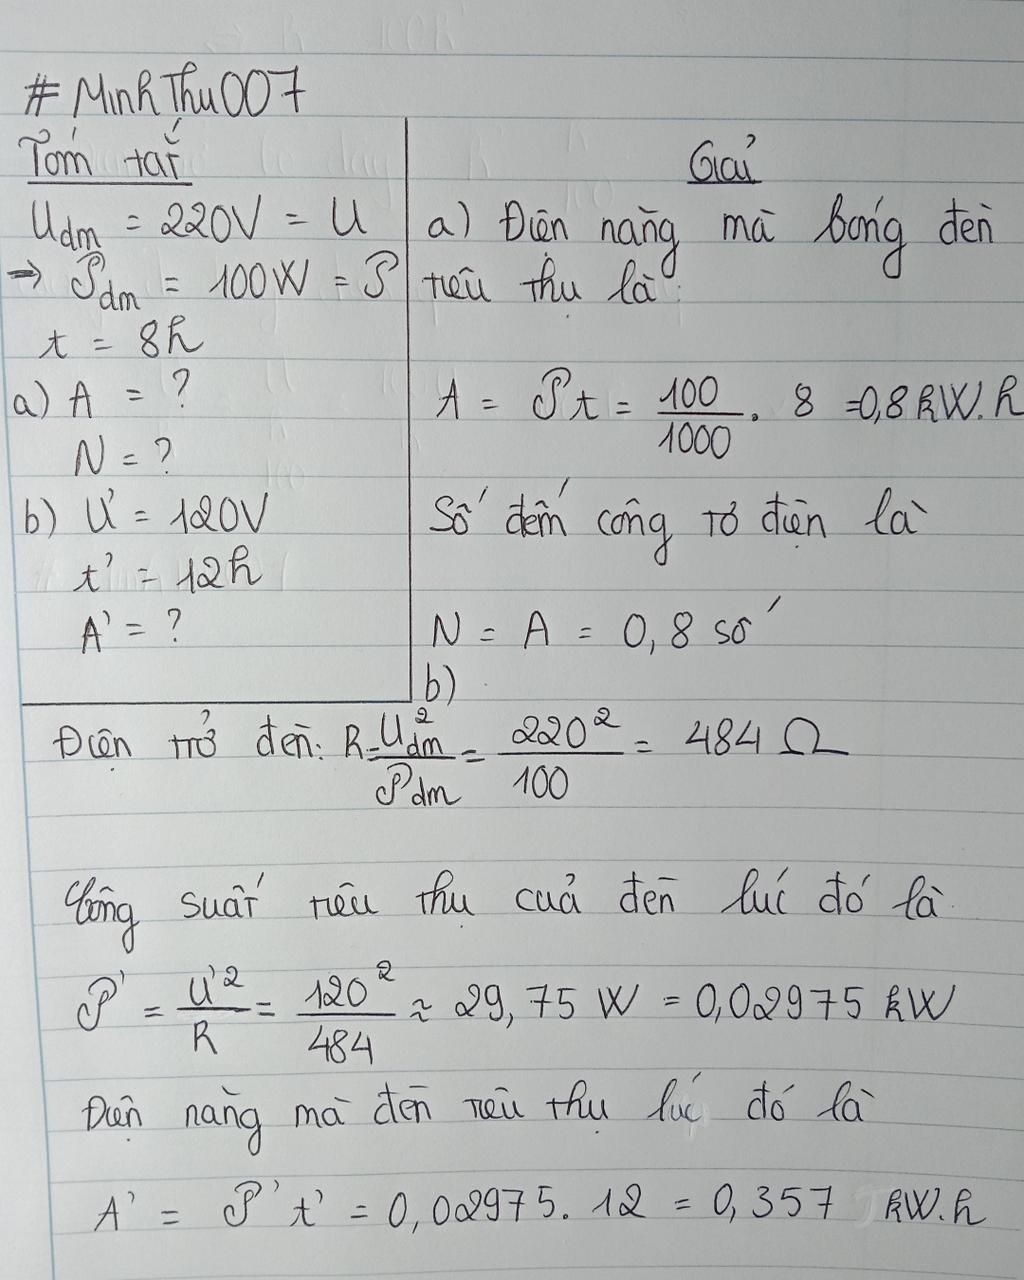 # MinhThu007
Tóm tắt
Uđm = 220V = U
→ 𝒫đm = 100W = 𝒫
t = 8h
a) A = ?
N = ?
b) U' = 120V
t' = 12h
A' = ?
Giải
a) Điện năng mà bóng đèn
tiêu thụ là:
A = 𝒫t = 100/1000 . 8 = 0,8 kW.h
Số đếm công tơ điện là
N = A = 0,8 số
b)
Điện trở đèn: R = U²đm/𝒫đm = 220²/100 = 484 Ω
Công suất tiêu thụ của đèn lúc đó là
𝒫' = U'²/R = 120²/484 ≈ 29,75 W = 0,02975 kW
Điện năng mà đèn tiêu thụ lúc đó là
A' = 𝒫't' = 0,02975. 12 = 0,357 kW.h